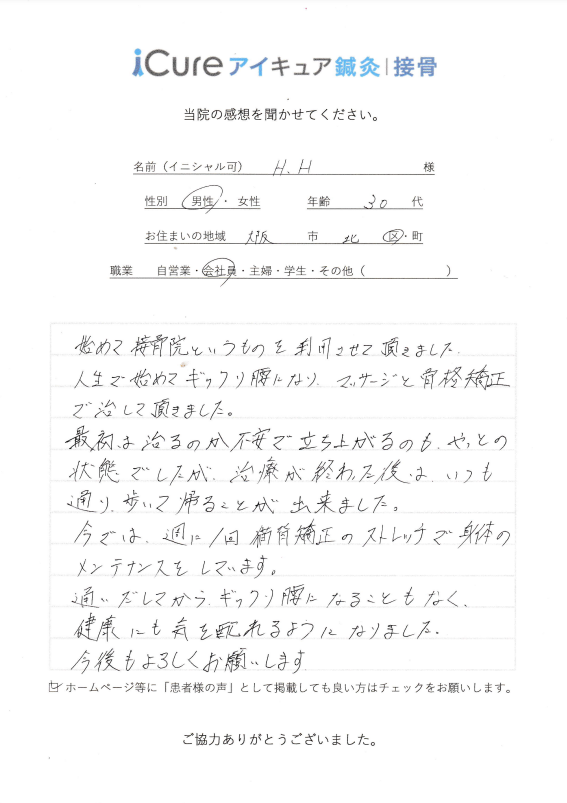 iCure アイキュア鍼灸|接骨
当院の感想を聞かせてください。
名前（イニシャル可） H.H 様
性別 男性・女性 年齢 30 代
お住まいの地域 大阪 市 北 区・町
職業 自営業・会社員・主婦・学生・その他（ ）
始めて接骨院というものを利用させて頂きました.
人生で始めてギックリ腰になり、マッサージと骨格矯正
で治して頂きました。
最初は治るのか不安で立ち上がるのも、やっとの
状態でしたが、治療が終わった後は、いつも
通り、歩いて帰ることが出来ました。
今では、週に1回 矯正のストレッチで身体の
メンテナンスをしています。
通いだしてから、ギックリ腰になることもなく、
健康にも気を配れるようになりました.
今後もよろしくお願いします
☑ホームページ等に「患者様の声」として掲載しても良い方はチェックをお願いします。
ご協力ありがとうございました。